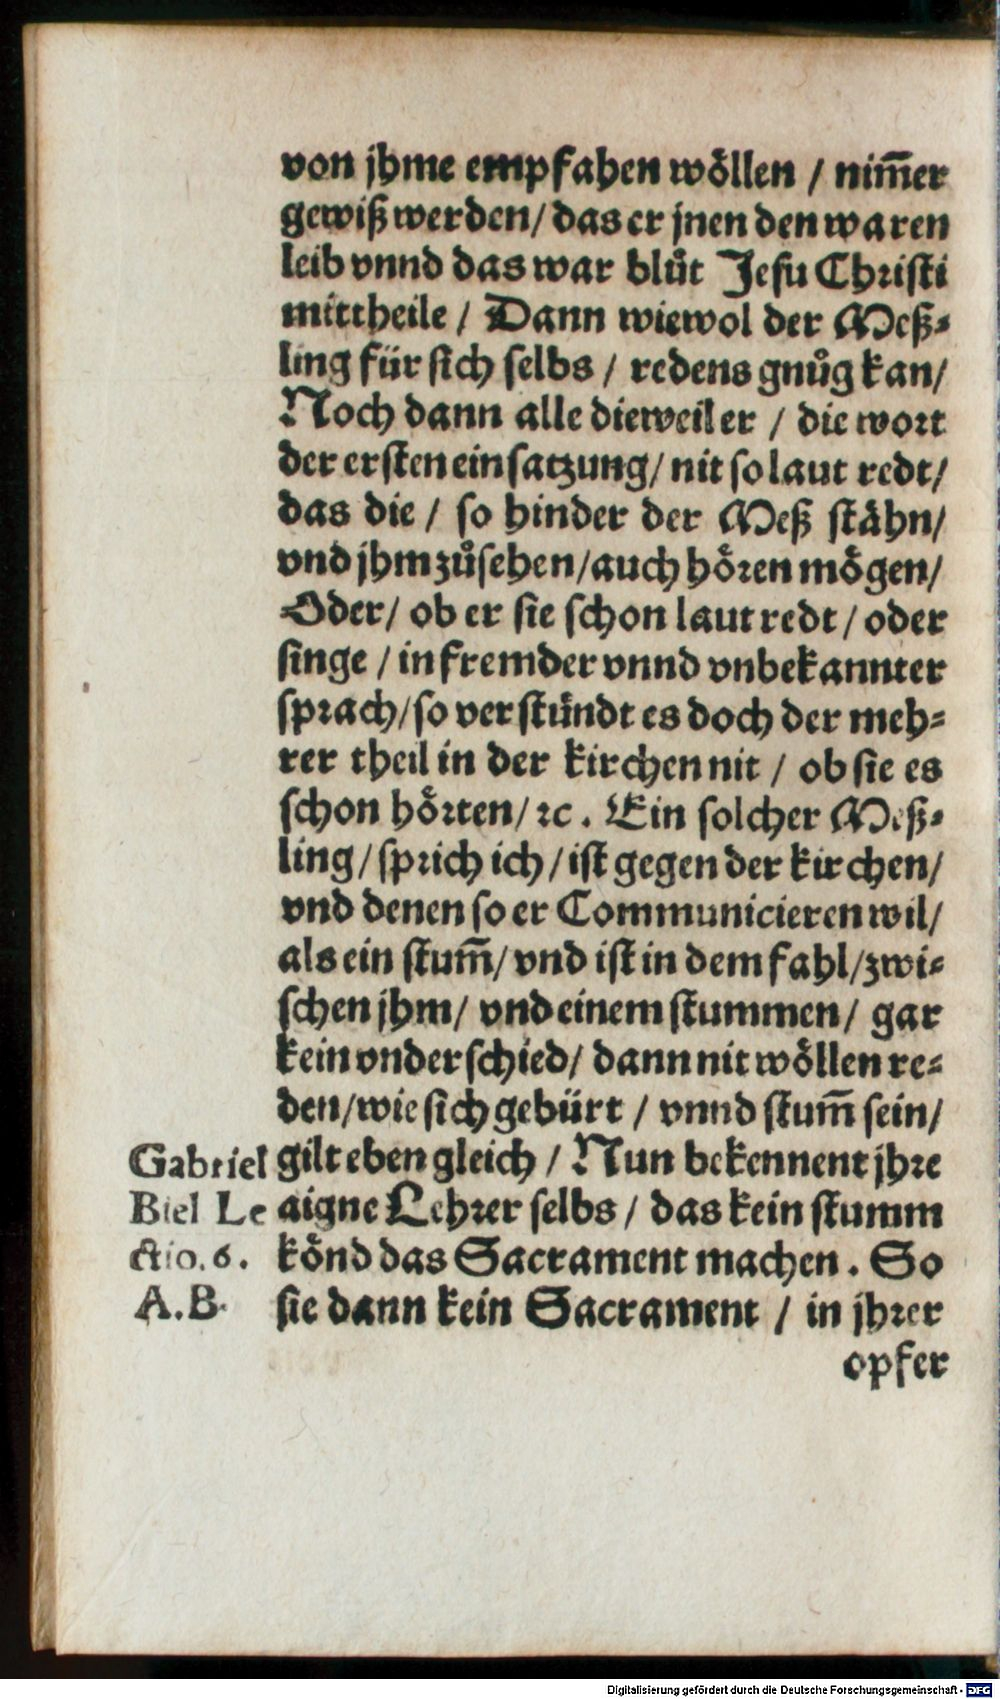 von jhme empfahen wöllen / nim̄er
gewiß werden / das er jnen den waren
leib vnnd das war blůt Jesu Christi
mittheile / Dann wiewol der Meß-
ling für sich selbs / redens gnůg kan /
Noch dann alle dieweil er / die wort
der ersten einsatzung / nit so laut redt /
das die / so hinder der Meß stähn /
vnd jhm zůsehen / auch hören mögen /
Oder / ob er sie schon laut redt / oder
singe / in fremder vnnd vnbekannter
sprach / so verstündt es doch der meh-
rer theil in der kirchen nit / ob sie es
schon hörten / ꝛc. Ein solcher Meß-
ling / sprich ich / ist gegen der kirchen /
vnd denen so er Communicieren wil /
als ein stum̄ / vnd ist in dem fahl / zwi-
schen jhm / vnd einem stummen / gar
kein vnderschied / dann nit wöllen re-
den / wie sich gebürt / vnnd stum̄ sein /
gilt eben gleich / Nun bekennent jhre
aigne Lehrer selbs / das kein stumm
könd das Sacrament machen . So
sie dann kein Sacrament / in jhrer
opfer
Gabriel
Biel Le
ctio. 6.
A.B.
Digitalisierung gefördert durch die Deutsche Forschungsgemeinschaft - DFG